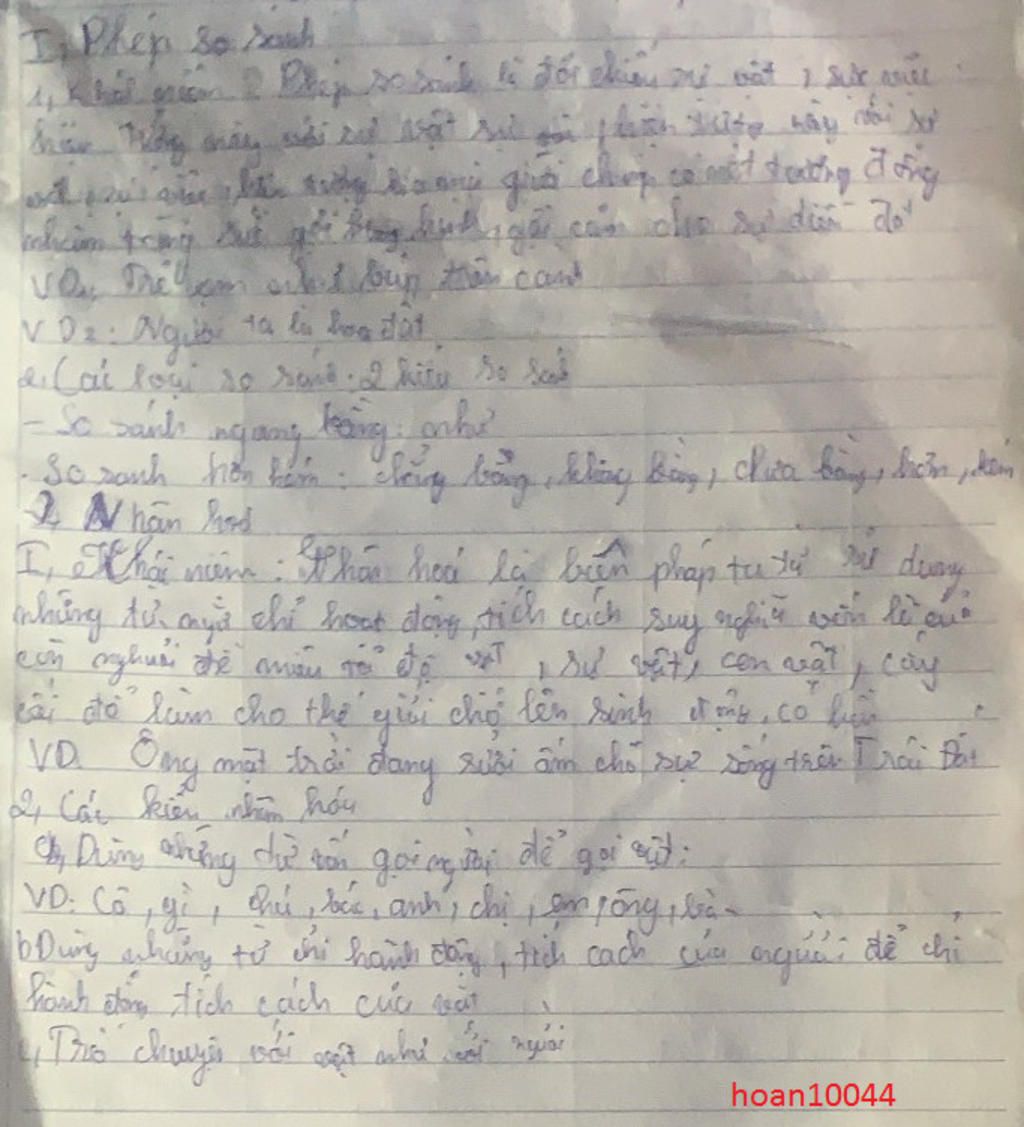 I, Phép so sánh
1, Khái niệm : Phép so sánh là đối chiếu sự vật, sự việc
hiện tượng này với sự vật sự , hiện tượng này với sự
vật, sự việc, hiện tượng giữa chúng có nét tương đồng
nhằm tăng sức gợi hình, gợi cảm cho sự diễn đạt
VD1, Trẻ em như búp trên cành
VD2: Người ta là hoa đất
2, Các loại so sánh: 2 kiểu so sánh
- So sánh ngang bằng: như
- So sánh hơn kém: chẳng bằng, không bằng, chưa bằng, hơn, kém
2, Nhân hoá
I, Khái niệm: Nhân hoá là biến pháp tu từ sử dụng
những từ ngữ chỉ hoạt động, tích cách suy nghĩ vốn là của
con người để miêu tả đồ vật, sự vật, con vật, cây
cối để làm cho thế giới chở lên sinh động, có hồn
VD. Ông mặt trời đang sưởi ấm cho sự sống trên Trái Đất
2, Các kiểu nhân hóa
a, Dùng những từ vốn gọi người để gọi vật:
VD: Cô, gì, chú, bác, anh, chị, em, ông, bà
b Dùng những từ chỉ hành động, tích cách của người để chỉ
hành động tích cách của vật
c, Trò chuyện với vật như với người
hoan10044